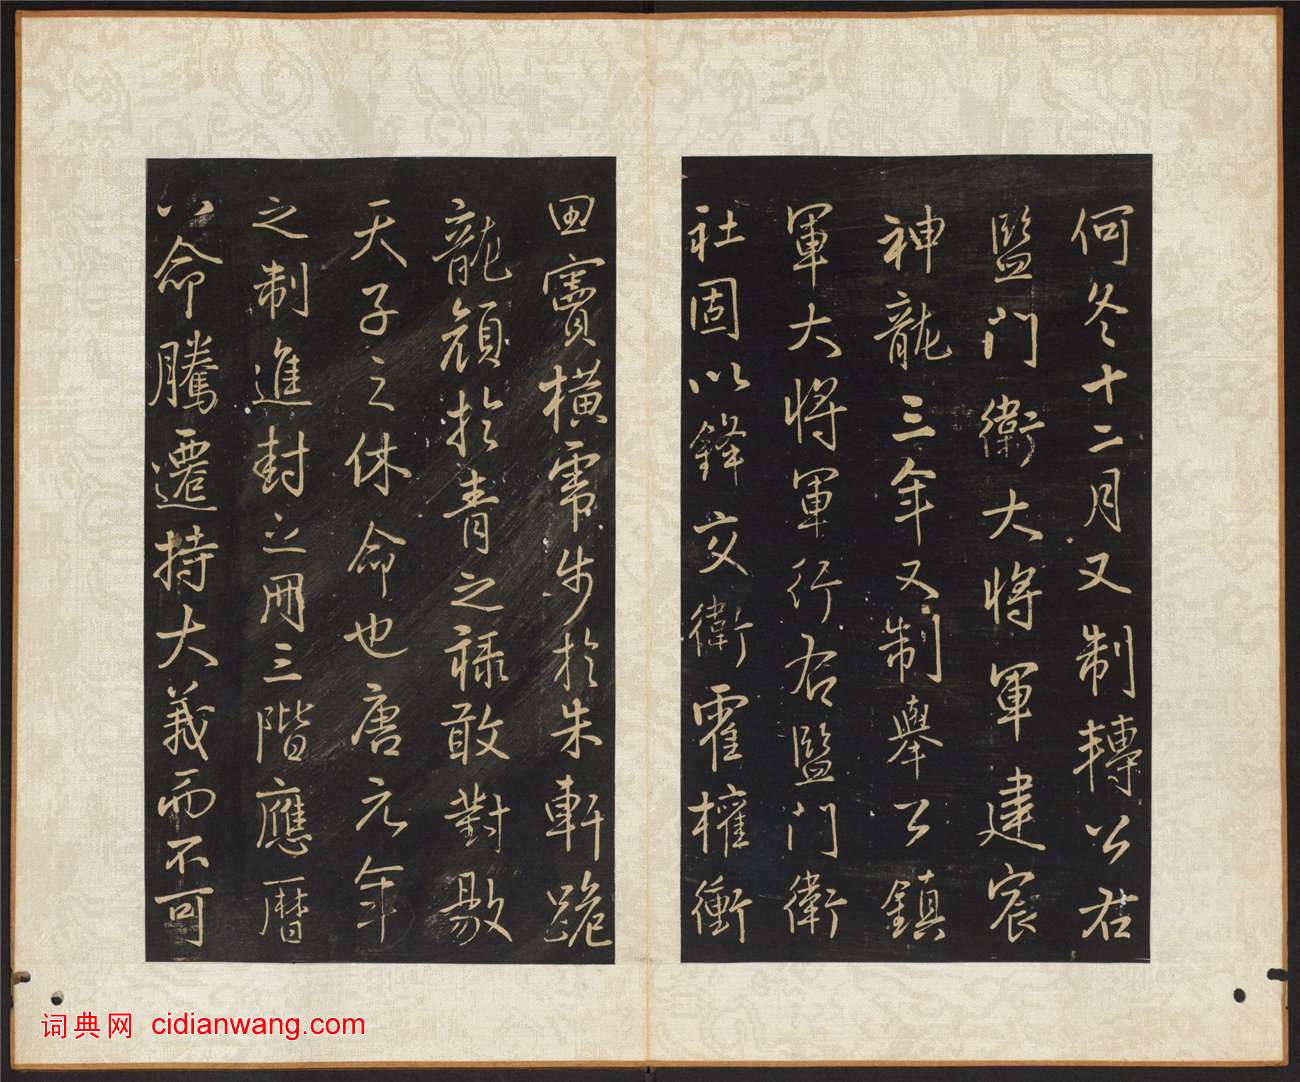 何冬十二月又制轉公左
監門衛大將軍建宸
神龍三年又制舉公鎮
軍大將軍行右監門衛
社固以鋒交衛霍權衡
田竇橫步於朱軒跪
龍顏於青之祿敢對敭
天子之休命也唐元年
之制進封之冊三階應曆
以命騰遷持大義而不可
词典网 cidianwang.com